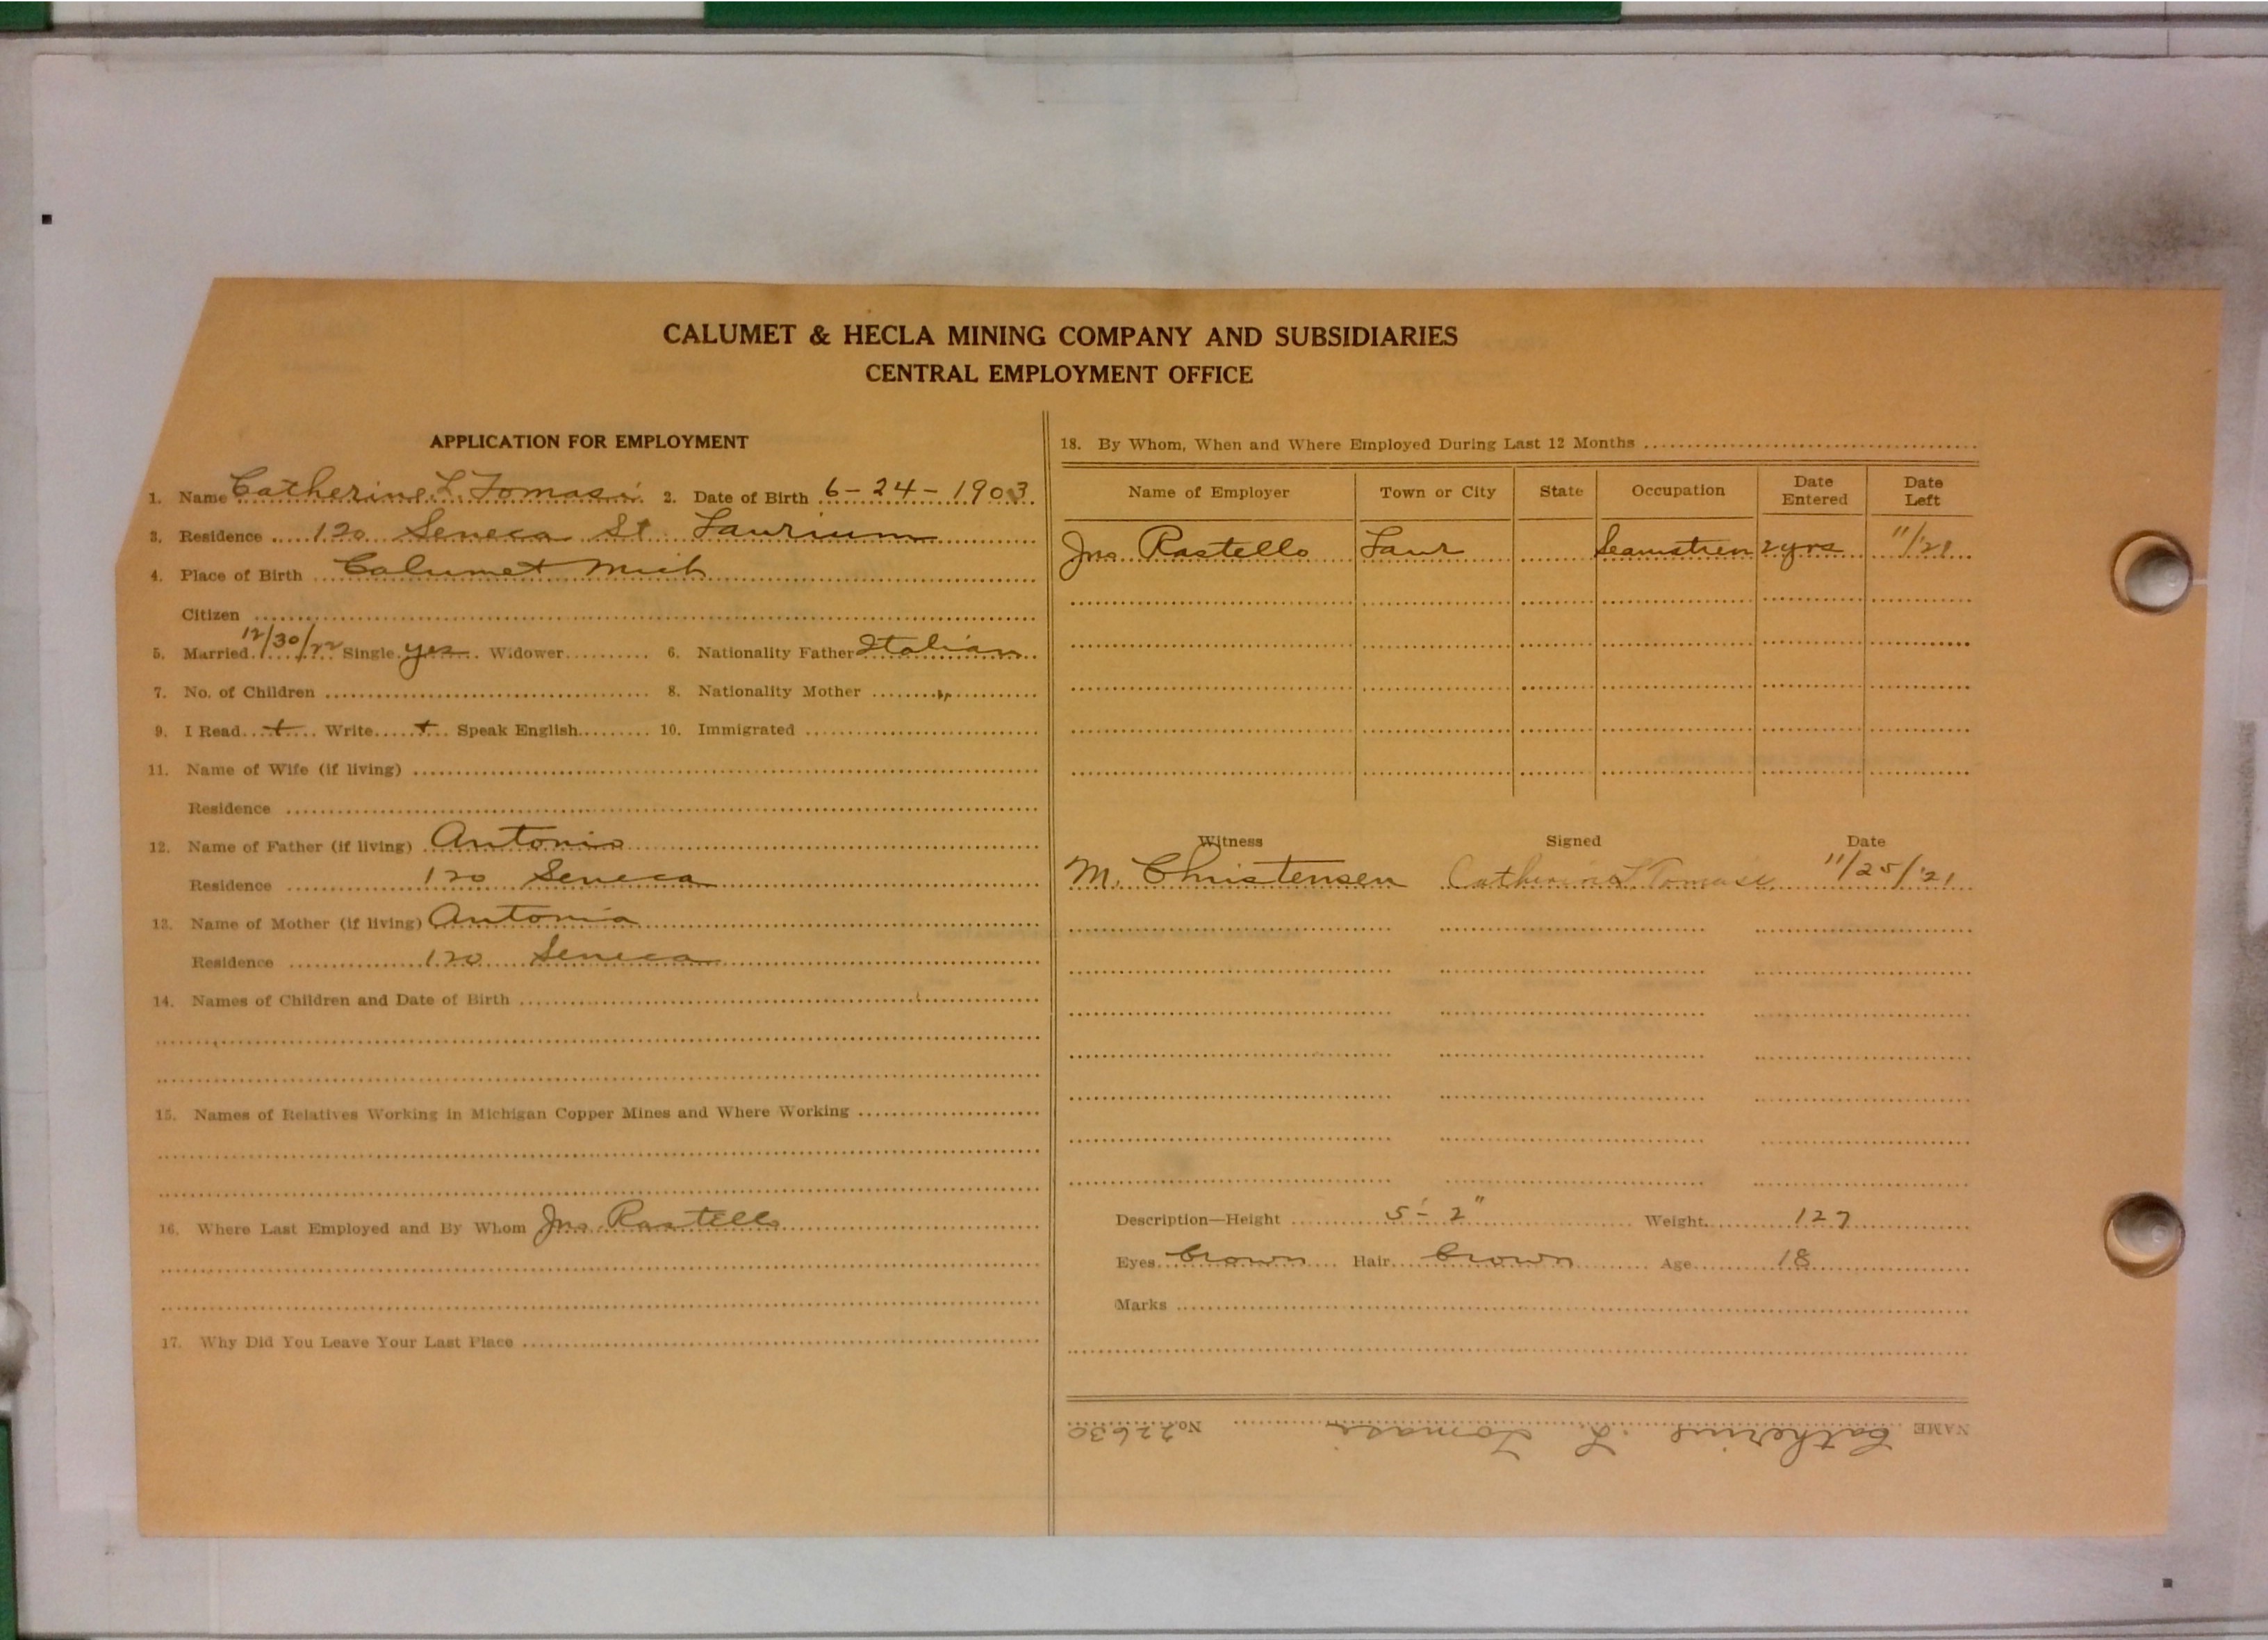 CALUMET & HECLA MINING COMPANY AND SUBSIDIARIES
CENTRAL EMPLOYMENT OFFICE
APPLICATION FOR EMPLOYMENT
1. Name Catherine L. Tomasi 2. Date of Birth 6-24-1903
3. Residence 120 Seneca St Laurium
4. Place of Birth Calumet Mich
Citizen
5. Married 12/30/22 Single yes Widower 6. Nationality Father Italian
7. No. of Children 8. Nationality Mother "
9. I Read + Write + Speak English 10. Immigrated
11. Name of Wife (if living)
Residence
12. Name of Father (if living) Antonio
Residence 120 Seneca
13. Name of Mother (if living) Antonia
Residence 120 Seneca
14. Names of Children and Date of Birth
15. Names of Relatives Working in Michigan Copper Mines and Where Working
16. Where Last Employed and By Whom Jno. Rastello
17. Why Did You Leave Your Last Place
18. By Whom, When and Where Employed During Last 12 Months
Name of Employer Town or City State Occupation Date Entered Date Left
Jno. Rastello Laur Seamstress 2 yrs 11/'21
Witness Signed Date
M. Christensen Catherine L Tomasi 11/25/'21
Description—Height 5'-2" Weight 127
Eyes brown Hair brown Age 18
Marks
NAME Catherine L. Tomasi No. 22630